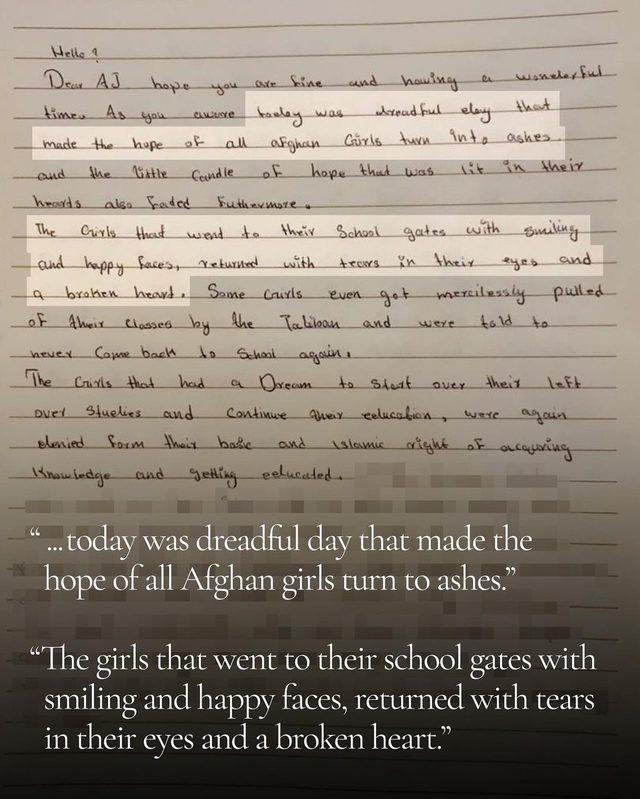 Hello ?
Dear AJ hope you are fine and having a wonderful
time. As you aware today was dreadful day that
made the hope of all afghan Girls turn into ashes.
and the little Candle of hope that was lit in their
heards also faded Futhermore.
The Girls that went to their School gates with smiling
and happy faces, returned with tears in their eyes and
a broken heart. Some Girls even got mercilessly pulled
of their classes by the Taliban and were told to
never Come back to School again.
The Girls that had a Dream to Start over their left
over Studies and Continue their education, were again
denied form their basic and islamic right of acquring
knowledge and getting educated.
“ ...today was dreadful day that made the
hope of all Afghan girls turn to ashes.”
“The girls that went to their school gates with
smiling and happy faces, returned with tears
in their eyes and a broken heart.”